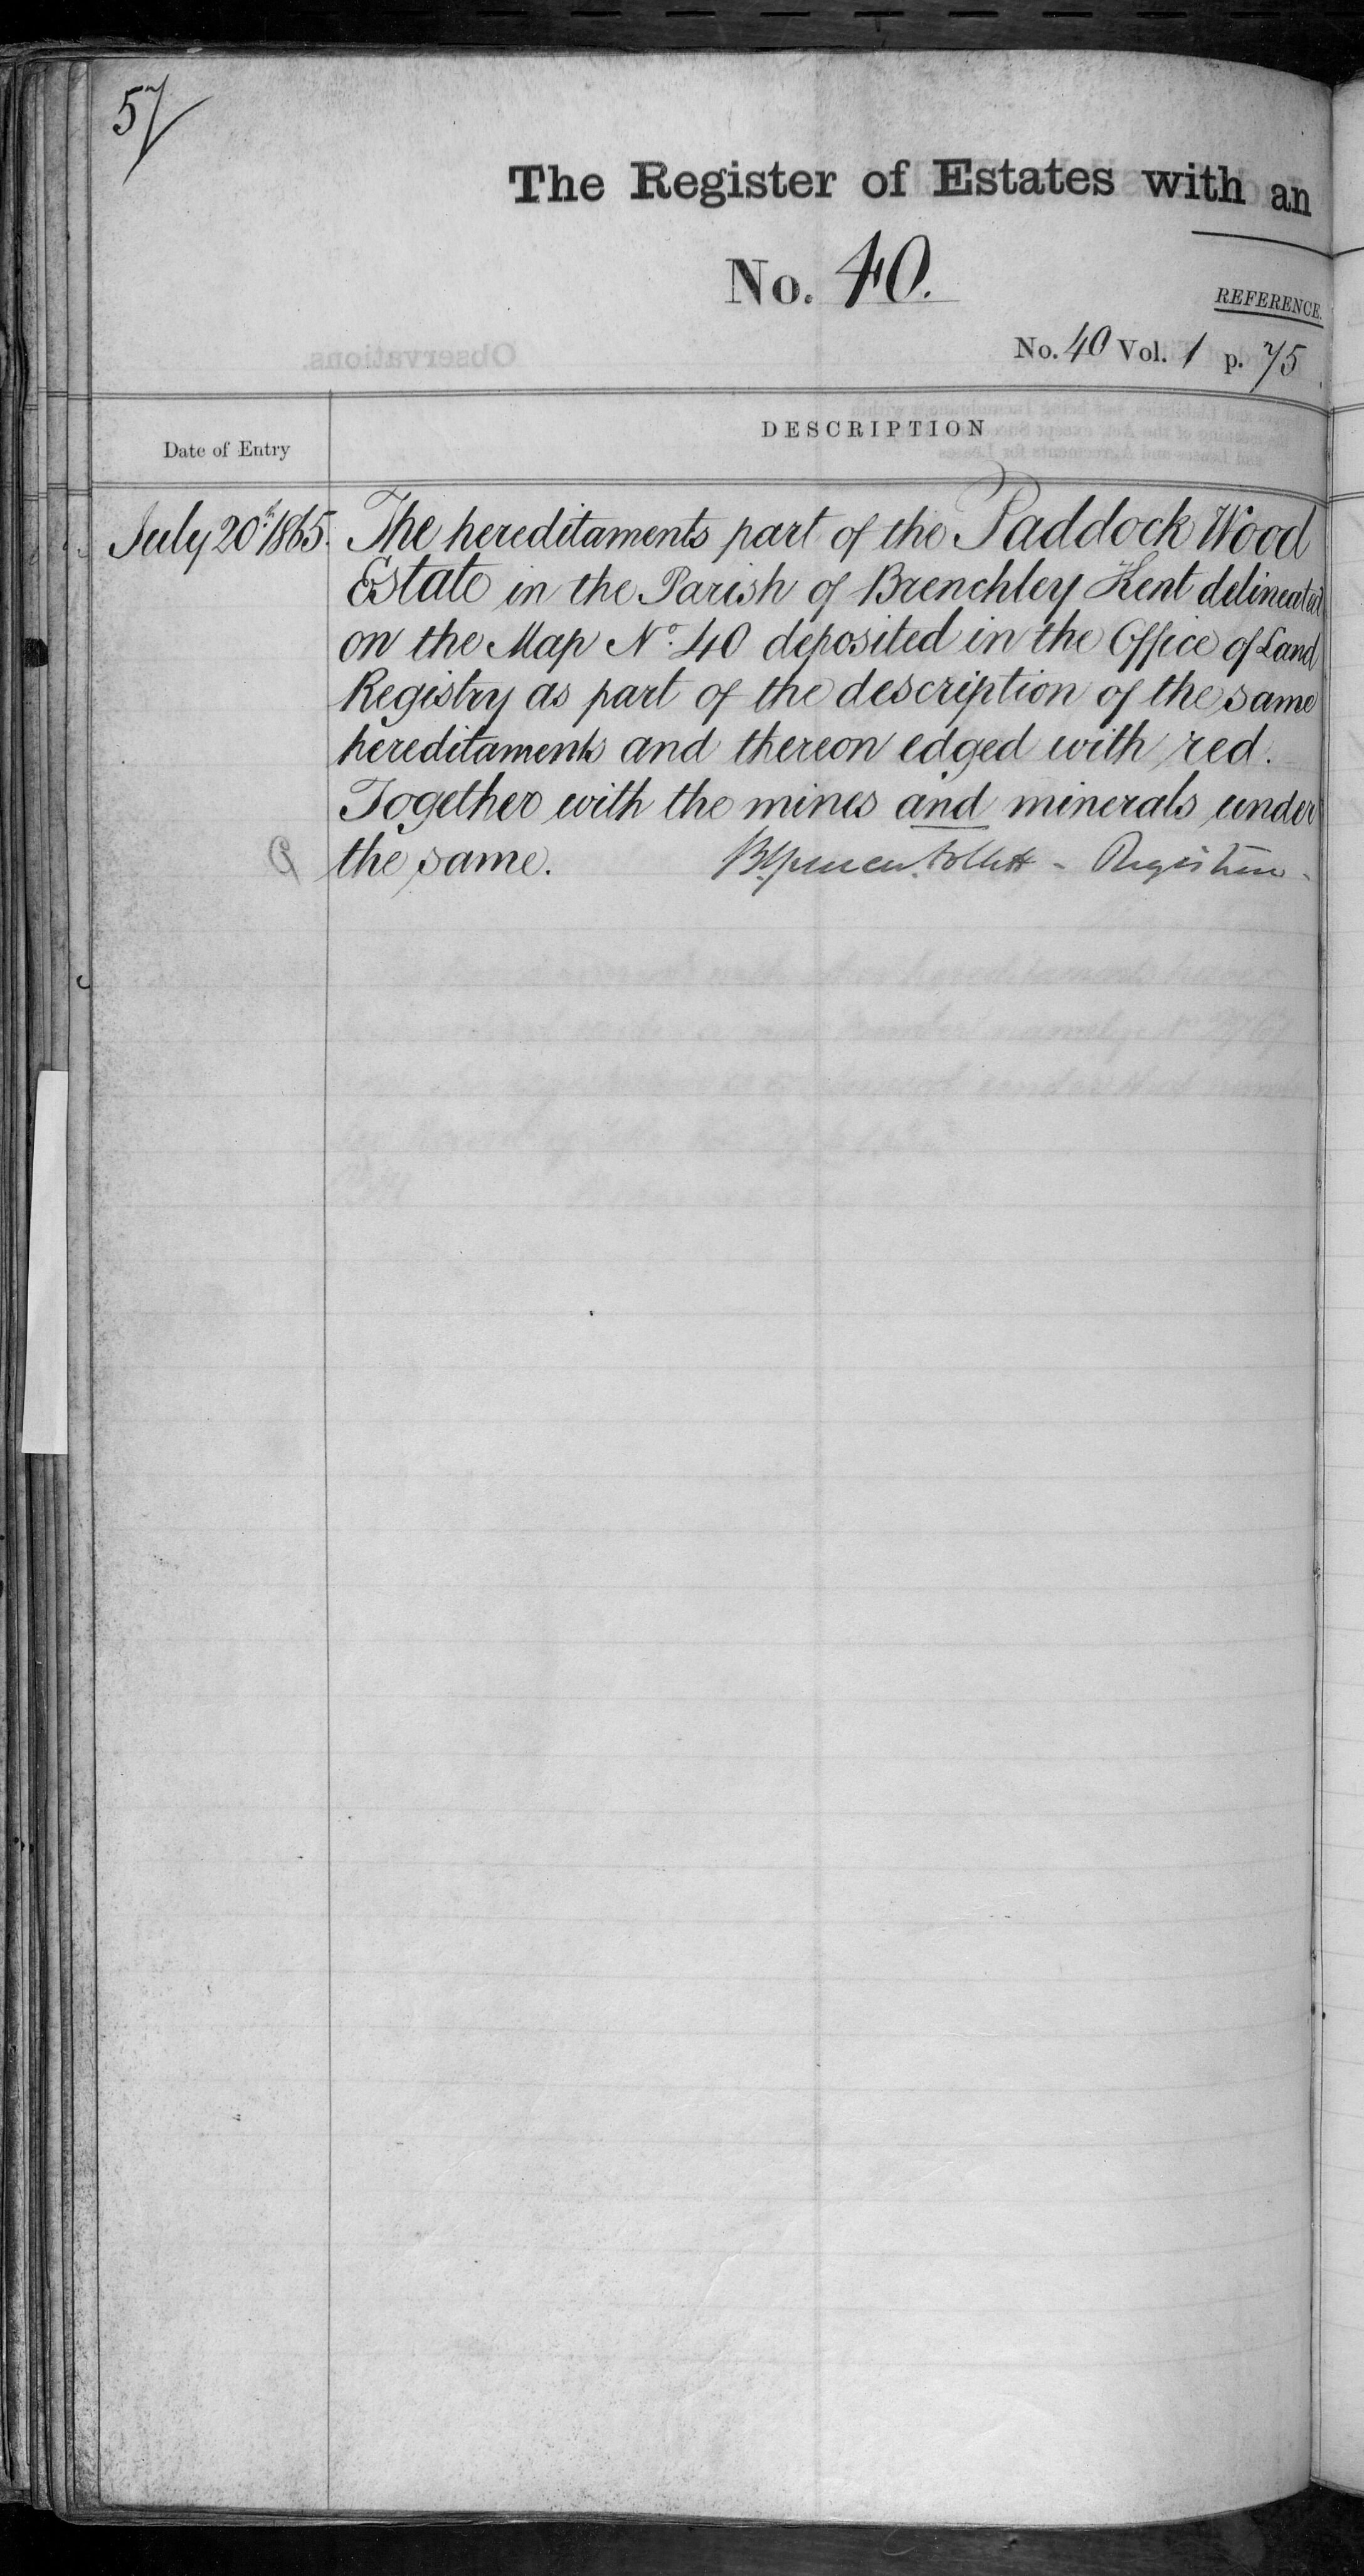 57
The Register of Estates with an
No. 40.
REFERENCE.
No. 40 Vol. 1 p. 75
Observations.
Date of Entry
DESCRIPTION
July 20th 1865. The hereditaments part of the Paddock Wood
Estate in the Parish of Brenchley Kent delineated
on the Map No. 40 deposited in the Office of Land
Registry as part of the description of the same
hereditaments and thereon edged with red.
Together with the mines and minerals under
the same. Brent Spencer Follett - Registrar.